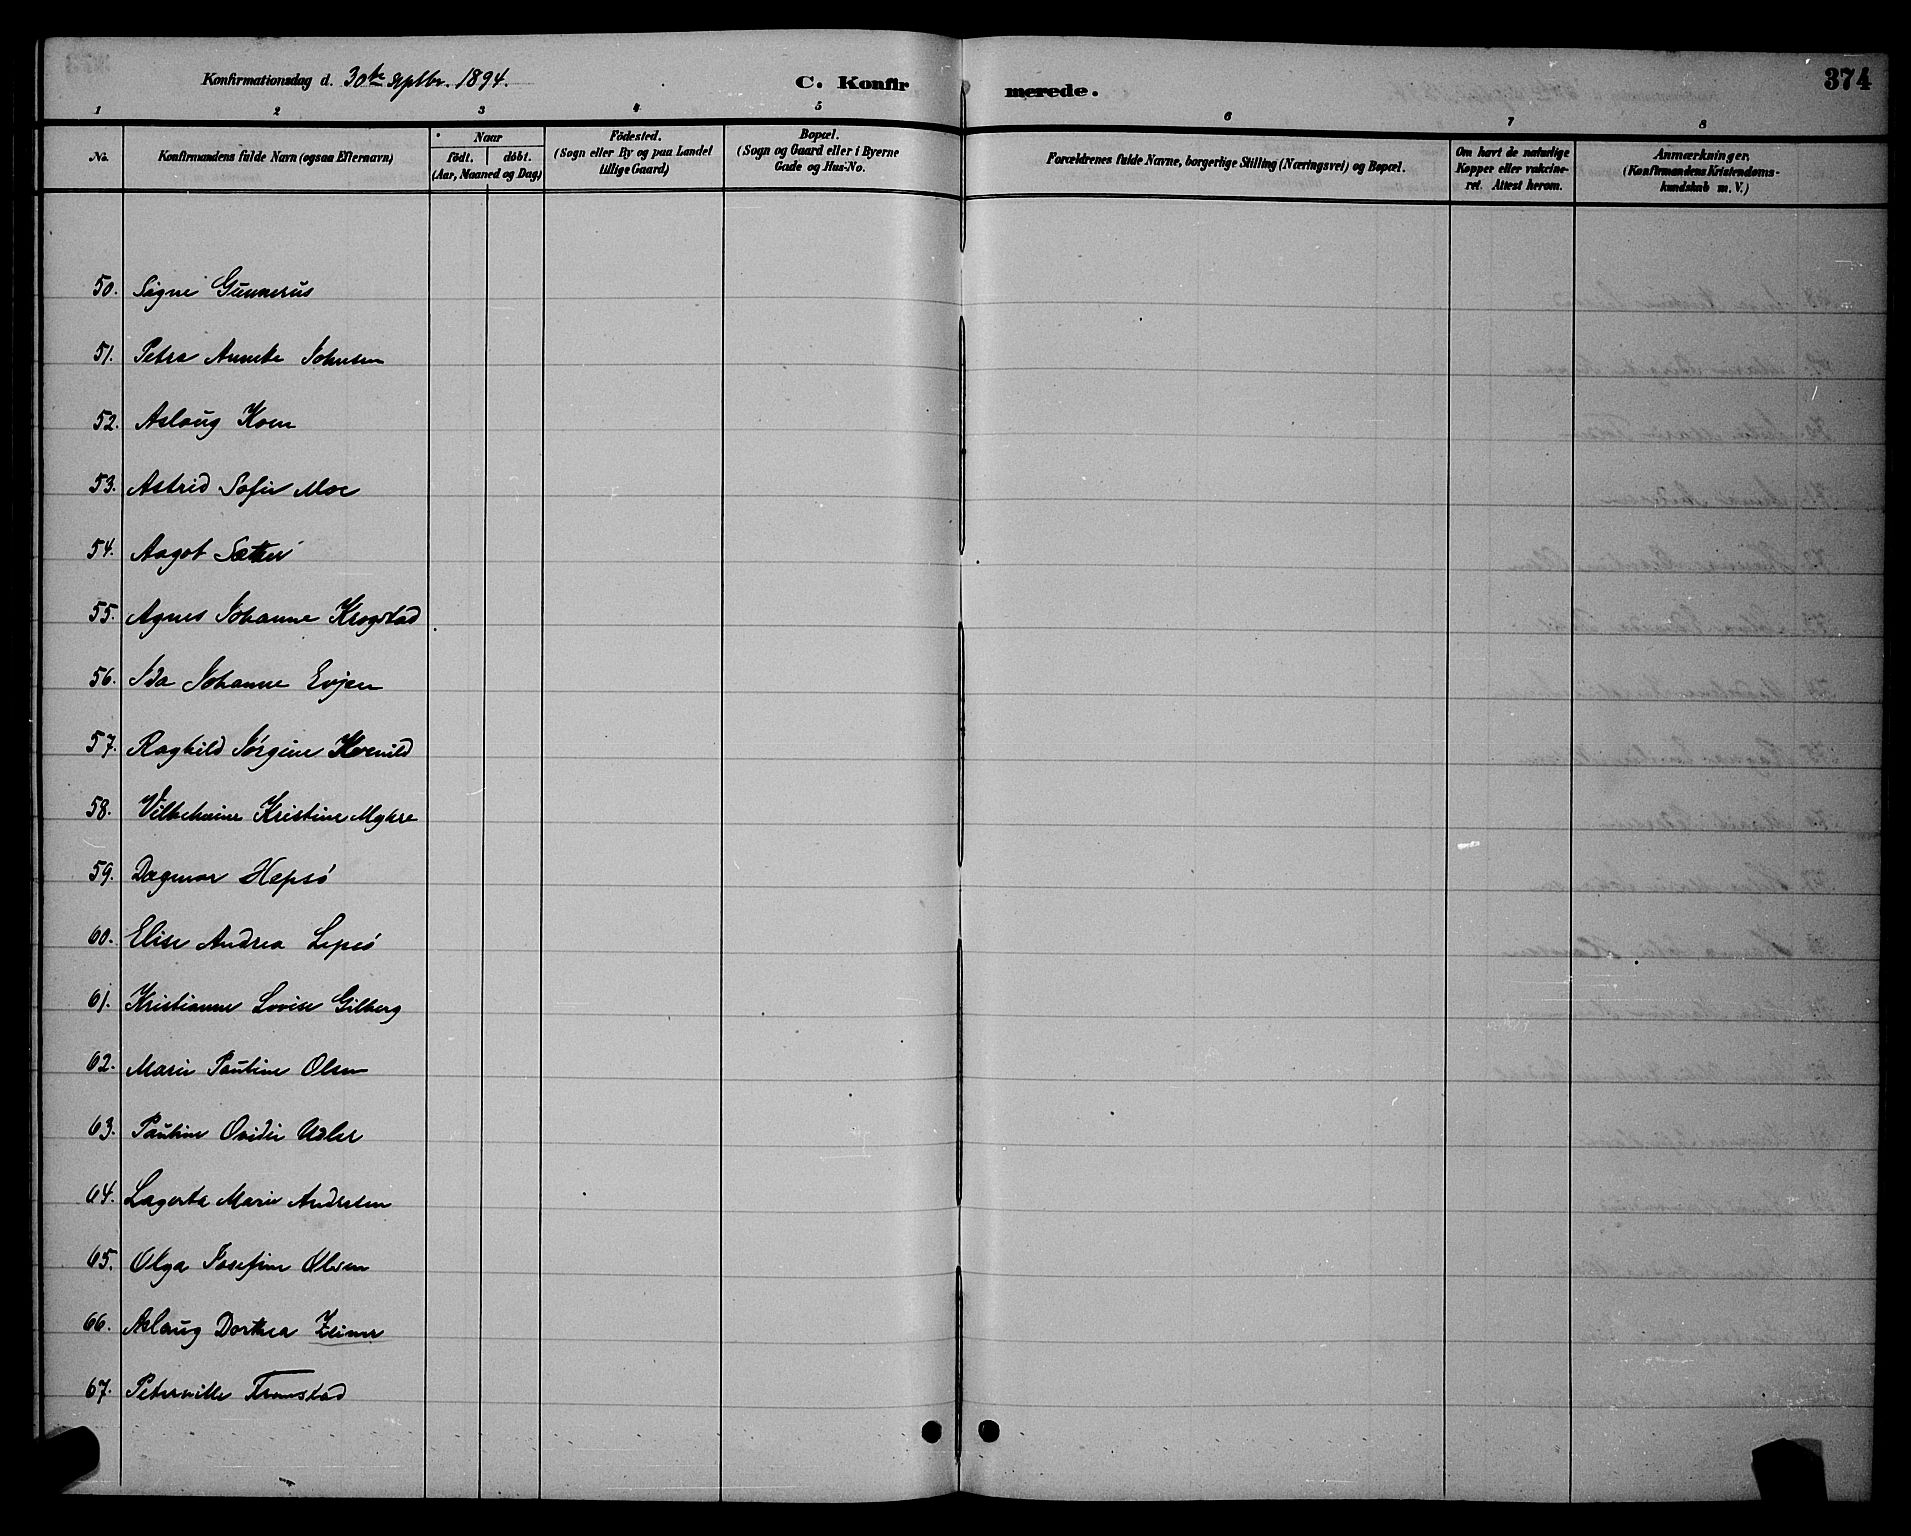 Konfirmationsdag d. 30te Septbr. 1894.
C. Konfirmerede.
374
1 2 3 4 5 6 7 8
No.
Konfirmandens fulde Navn (ogsaa Efternavn)
Naar
födt. döbt.
(Aar, Maaned og Dag)
Födested.
(Sogn eller By og paa Landet
tillige Gaard)
Bopæl.
(Sogn og Gaard eller i Byerne
Gade og Hus-No.
Forældrenes fulde Navne, borgerlige Stilling (Næringsvei) og Bopæl.
Om havt de naturlige
Kopper eller vakcine-
ret. Attest herom.
Anmærkninger.
(Konfirmandens Kristendoms-
kundskab m. V.)
50. Signe Gunnerus
51. Petra Annette Johnsen
52. Aslaug Koen
53. Astrid Sofie Moe
54. Aagot Sæther
55. Agnes Johanne Krogstad
56. Ida Johanne Evjen
57. Raghild Jørgine Kvenild
58. Vilhelmine Kristine Myhre
59. Dagmar Hepsø
60. Elise Andrea Lepsø
61. Kristianne Lovise Gilberg
62. Marie Pauline Olsen
63. Pauline Ovidie
64. Lagerta Marie Andresen
65. Olga Josefine Olsen
66. Aslaug Dorthea Zeiner
67. Peternille Tronstad